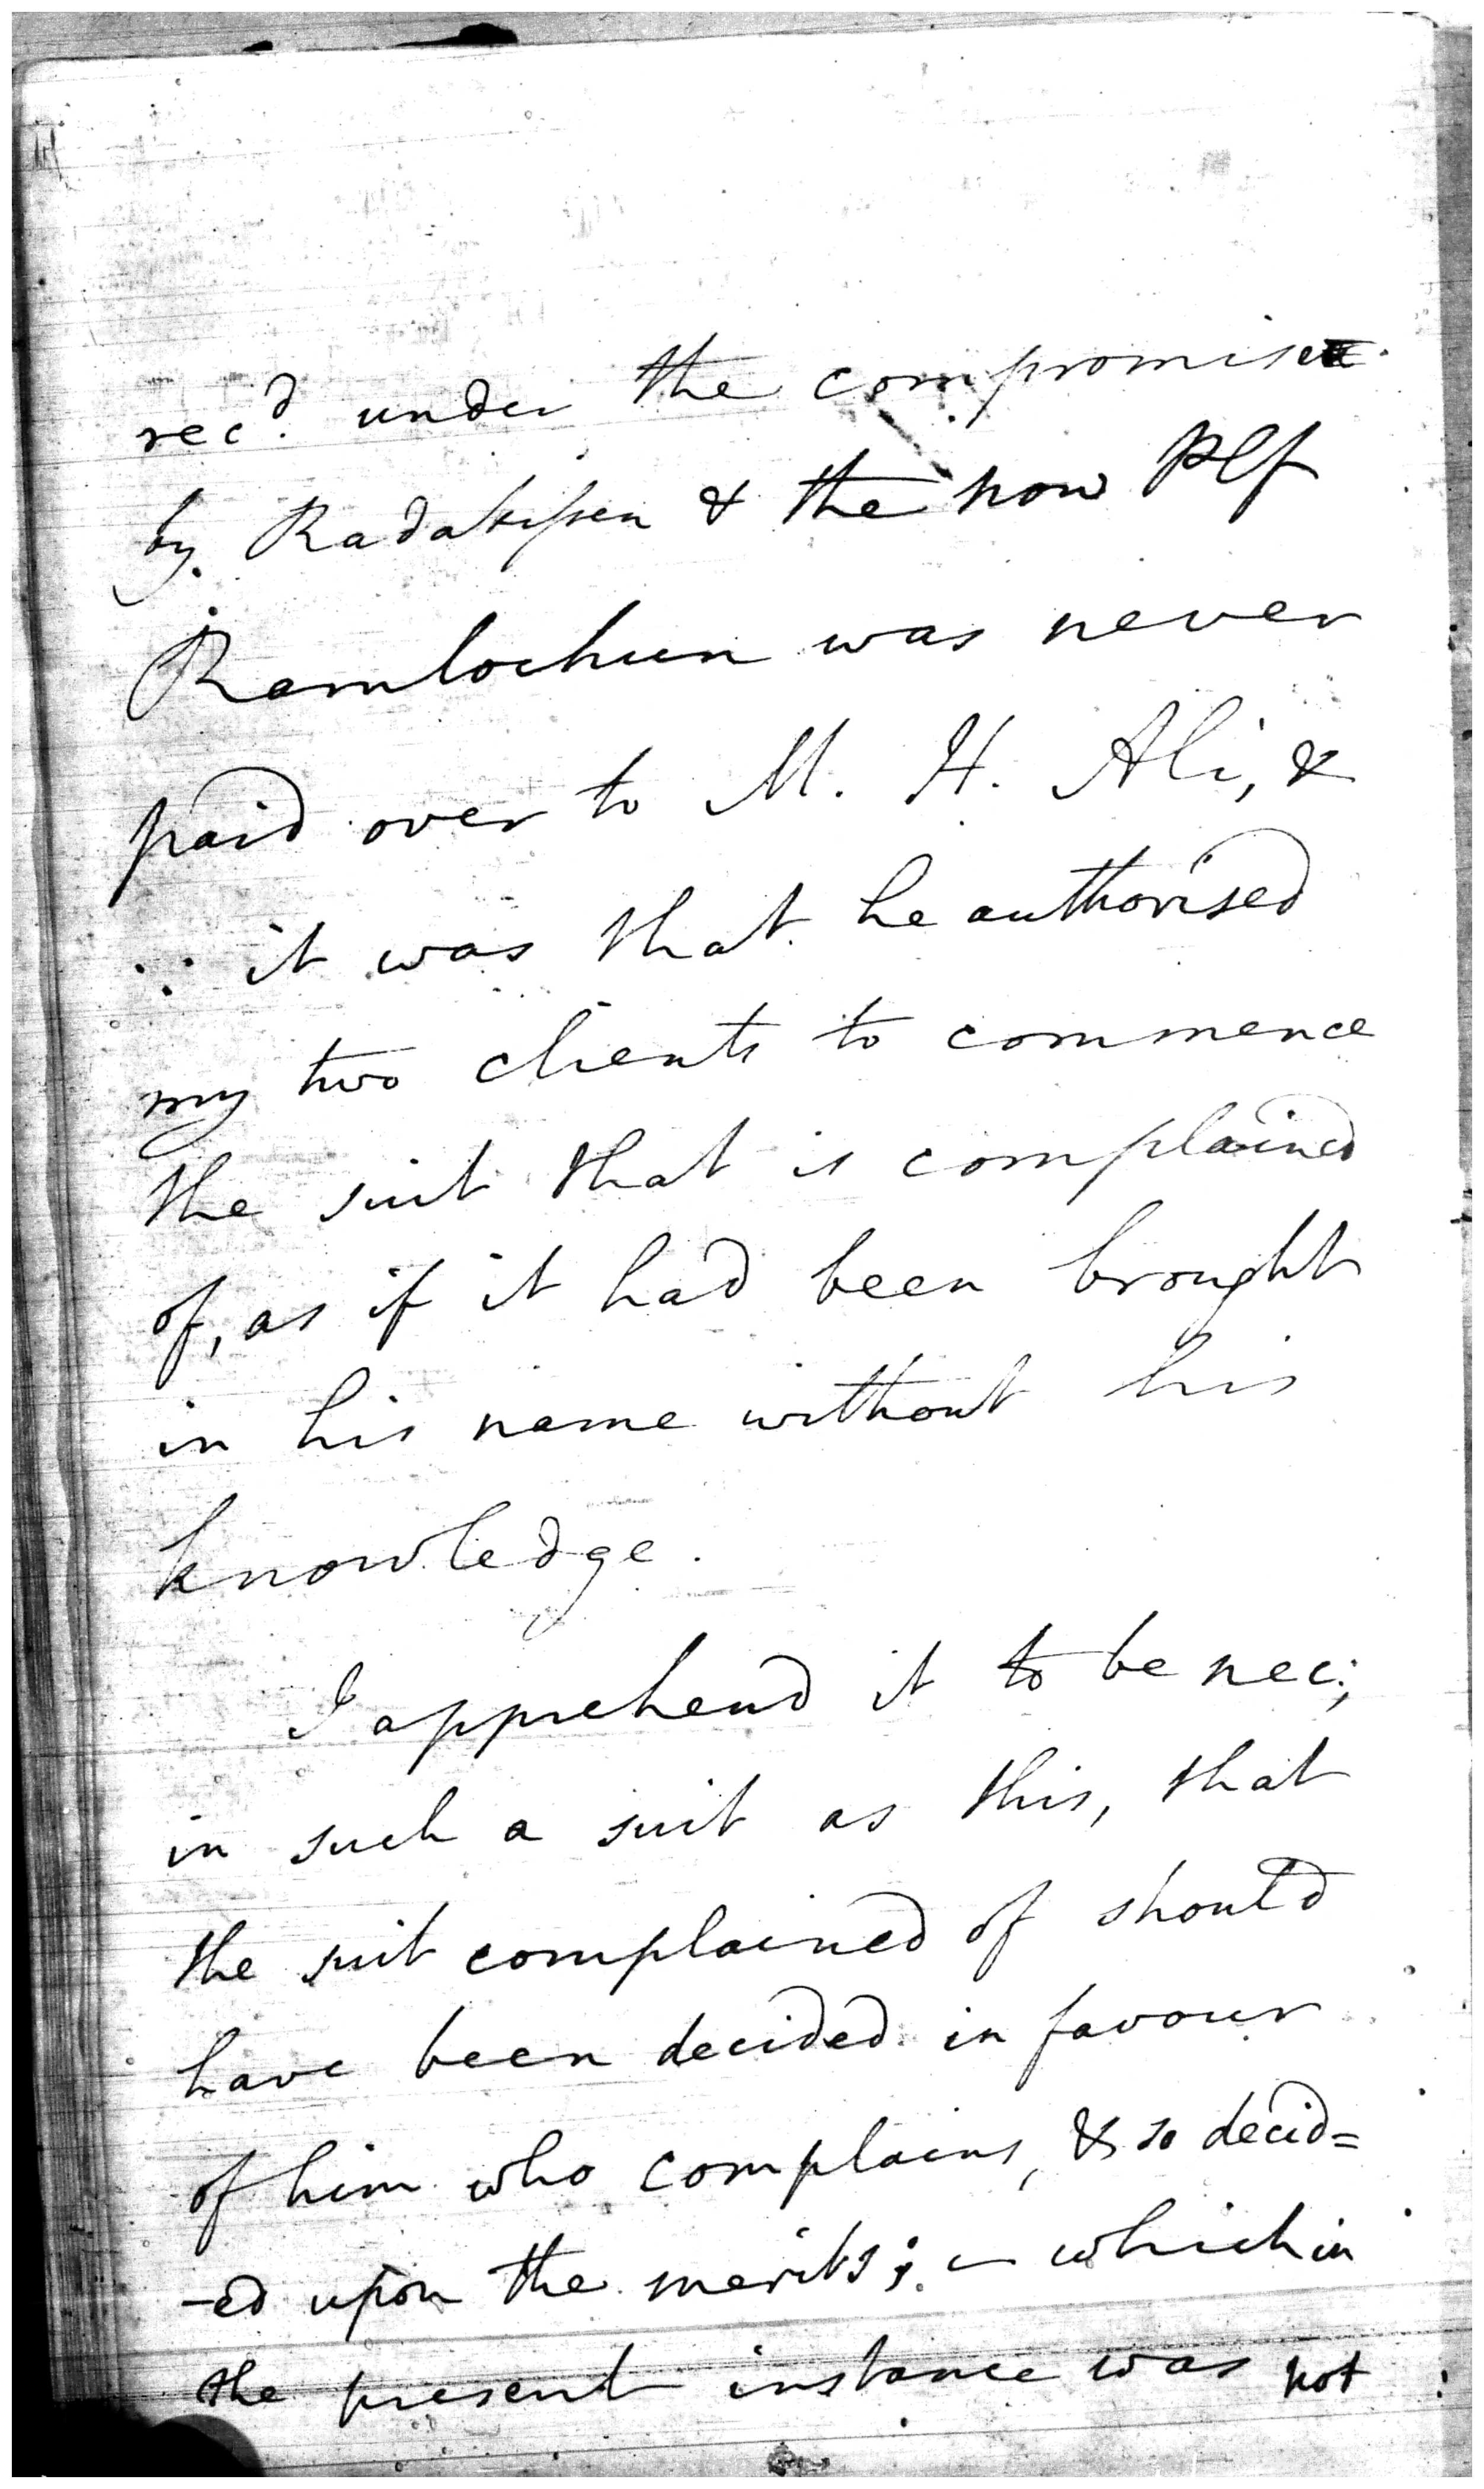 recd. under the compromise
by Radakissen & the now Plf
Ramlochun was never
paid over to M. H. Ali, &
∵ it was that he authorised
my two clients to commence
the suit that is complained
of, as if it had been brought
in his name without his
knowledge.
I apprehend it to be nec;
in such a suit as this, that
the suit complained of should
have been decided in favour
of him who complains, & so decid=
-ed upon the merits; – which in
the present instance was not